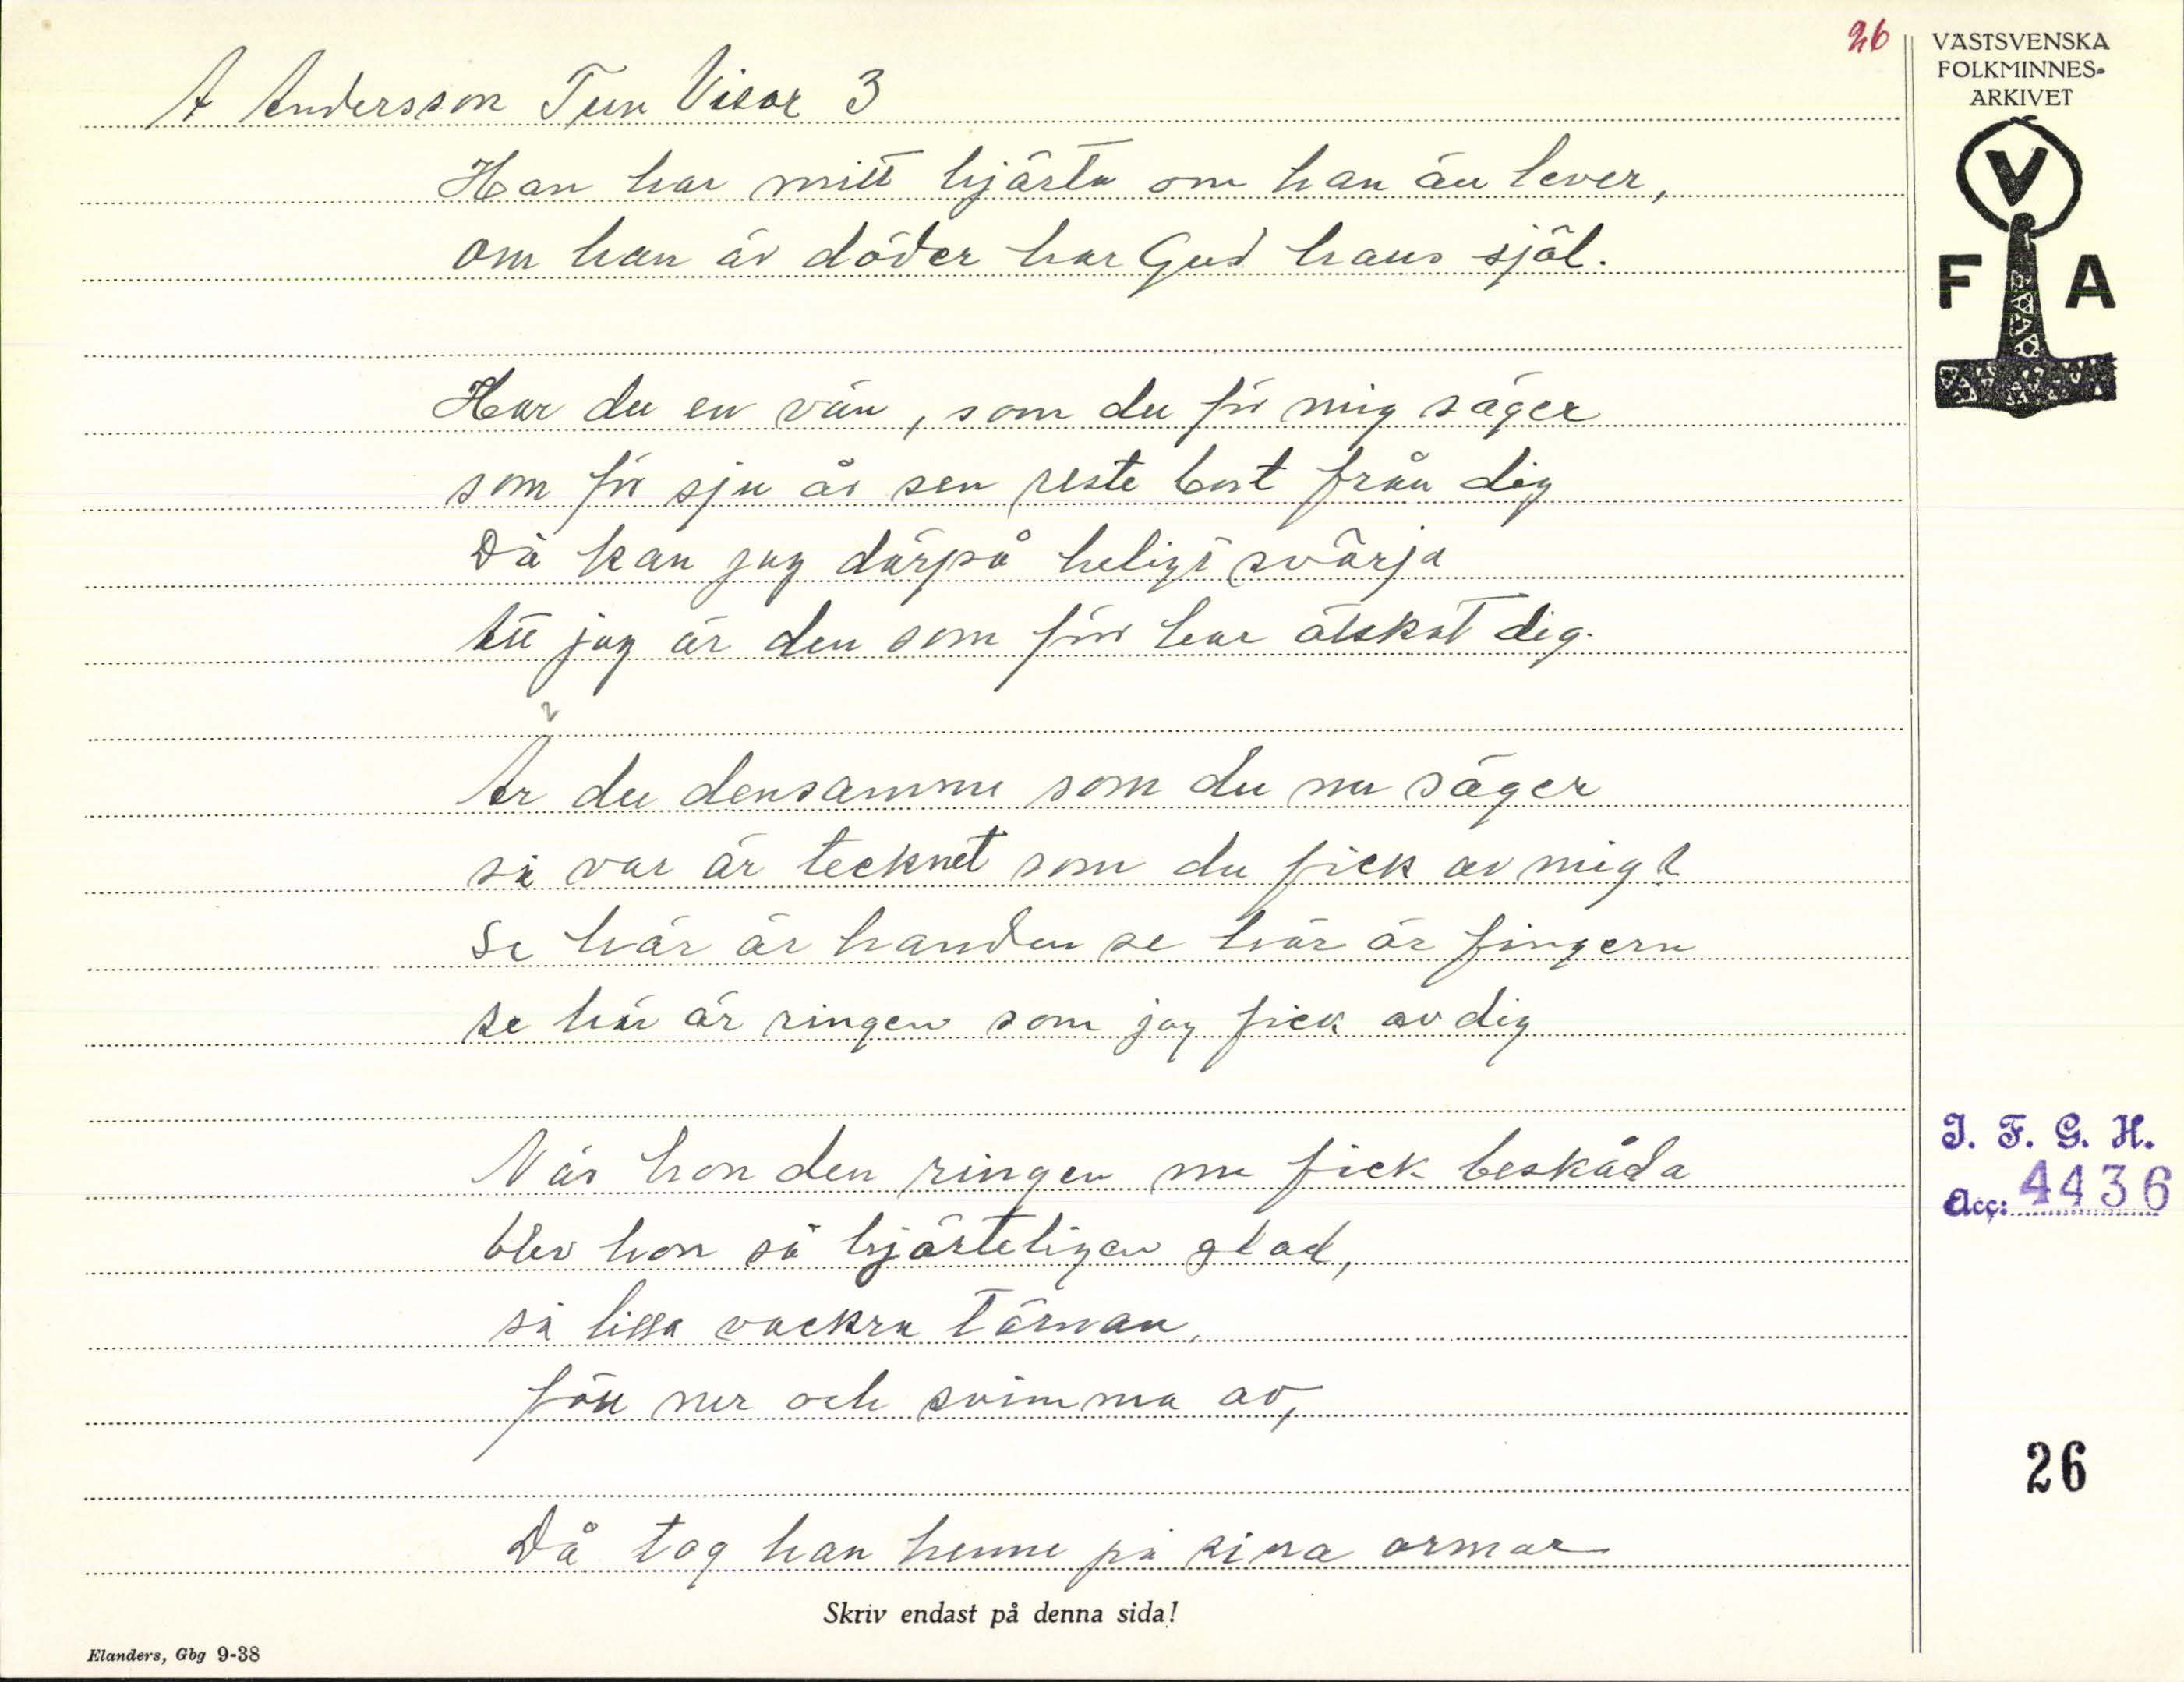 26
A Andersson Tun Visor 3
Han har mitt hjärta om han än lever,
om han är döder har Gud hans själ.
Har du en vän, som du för mig säger
som för sju år sen reste bort från dig
Då kan jag därpå heligt svärja
Att jag är den som förr har älskat dig.
Är du densamme som du nu säger
så var är tecknet som du fick av mig?
Se här är handen se här är fingern
se här är ringen som jag fick av dig
När hon den ringen nu fick beskåda
blev hon så hjärteligen glad,
så lilla vackra tärnan,
föll ner och svimma av,
Då tog han henne på sina armar
Skriv endast på denna sida!
Elanders, Gbg 9-38
VÄSTSVENSKA
FOLKMINNES-
ARKIVET
V
F A
I. F. G. H.
Acc: 4436
26